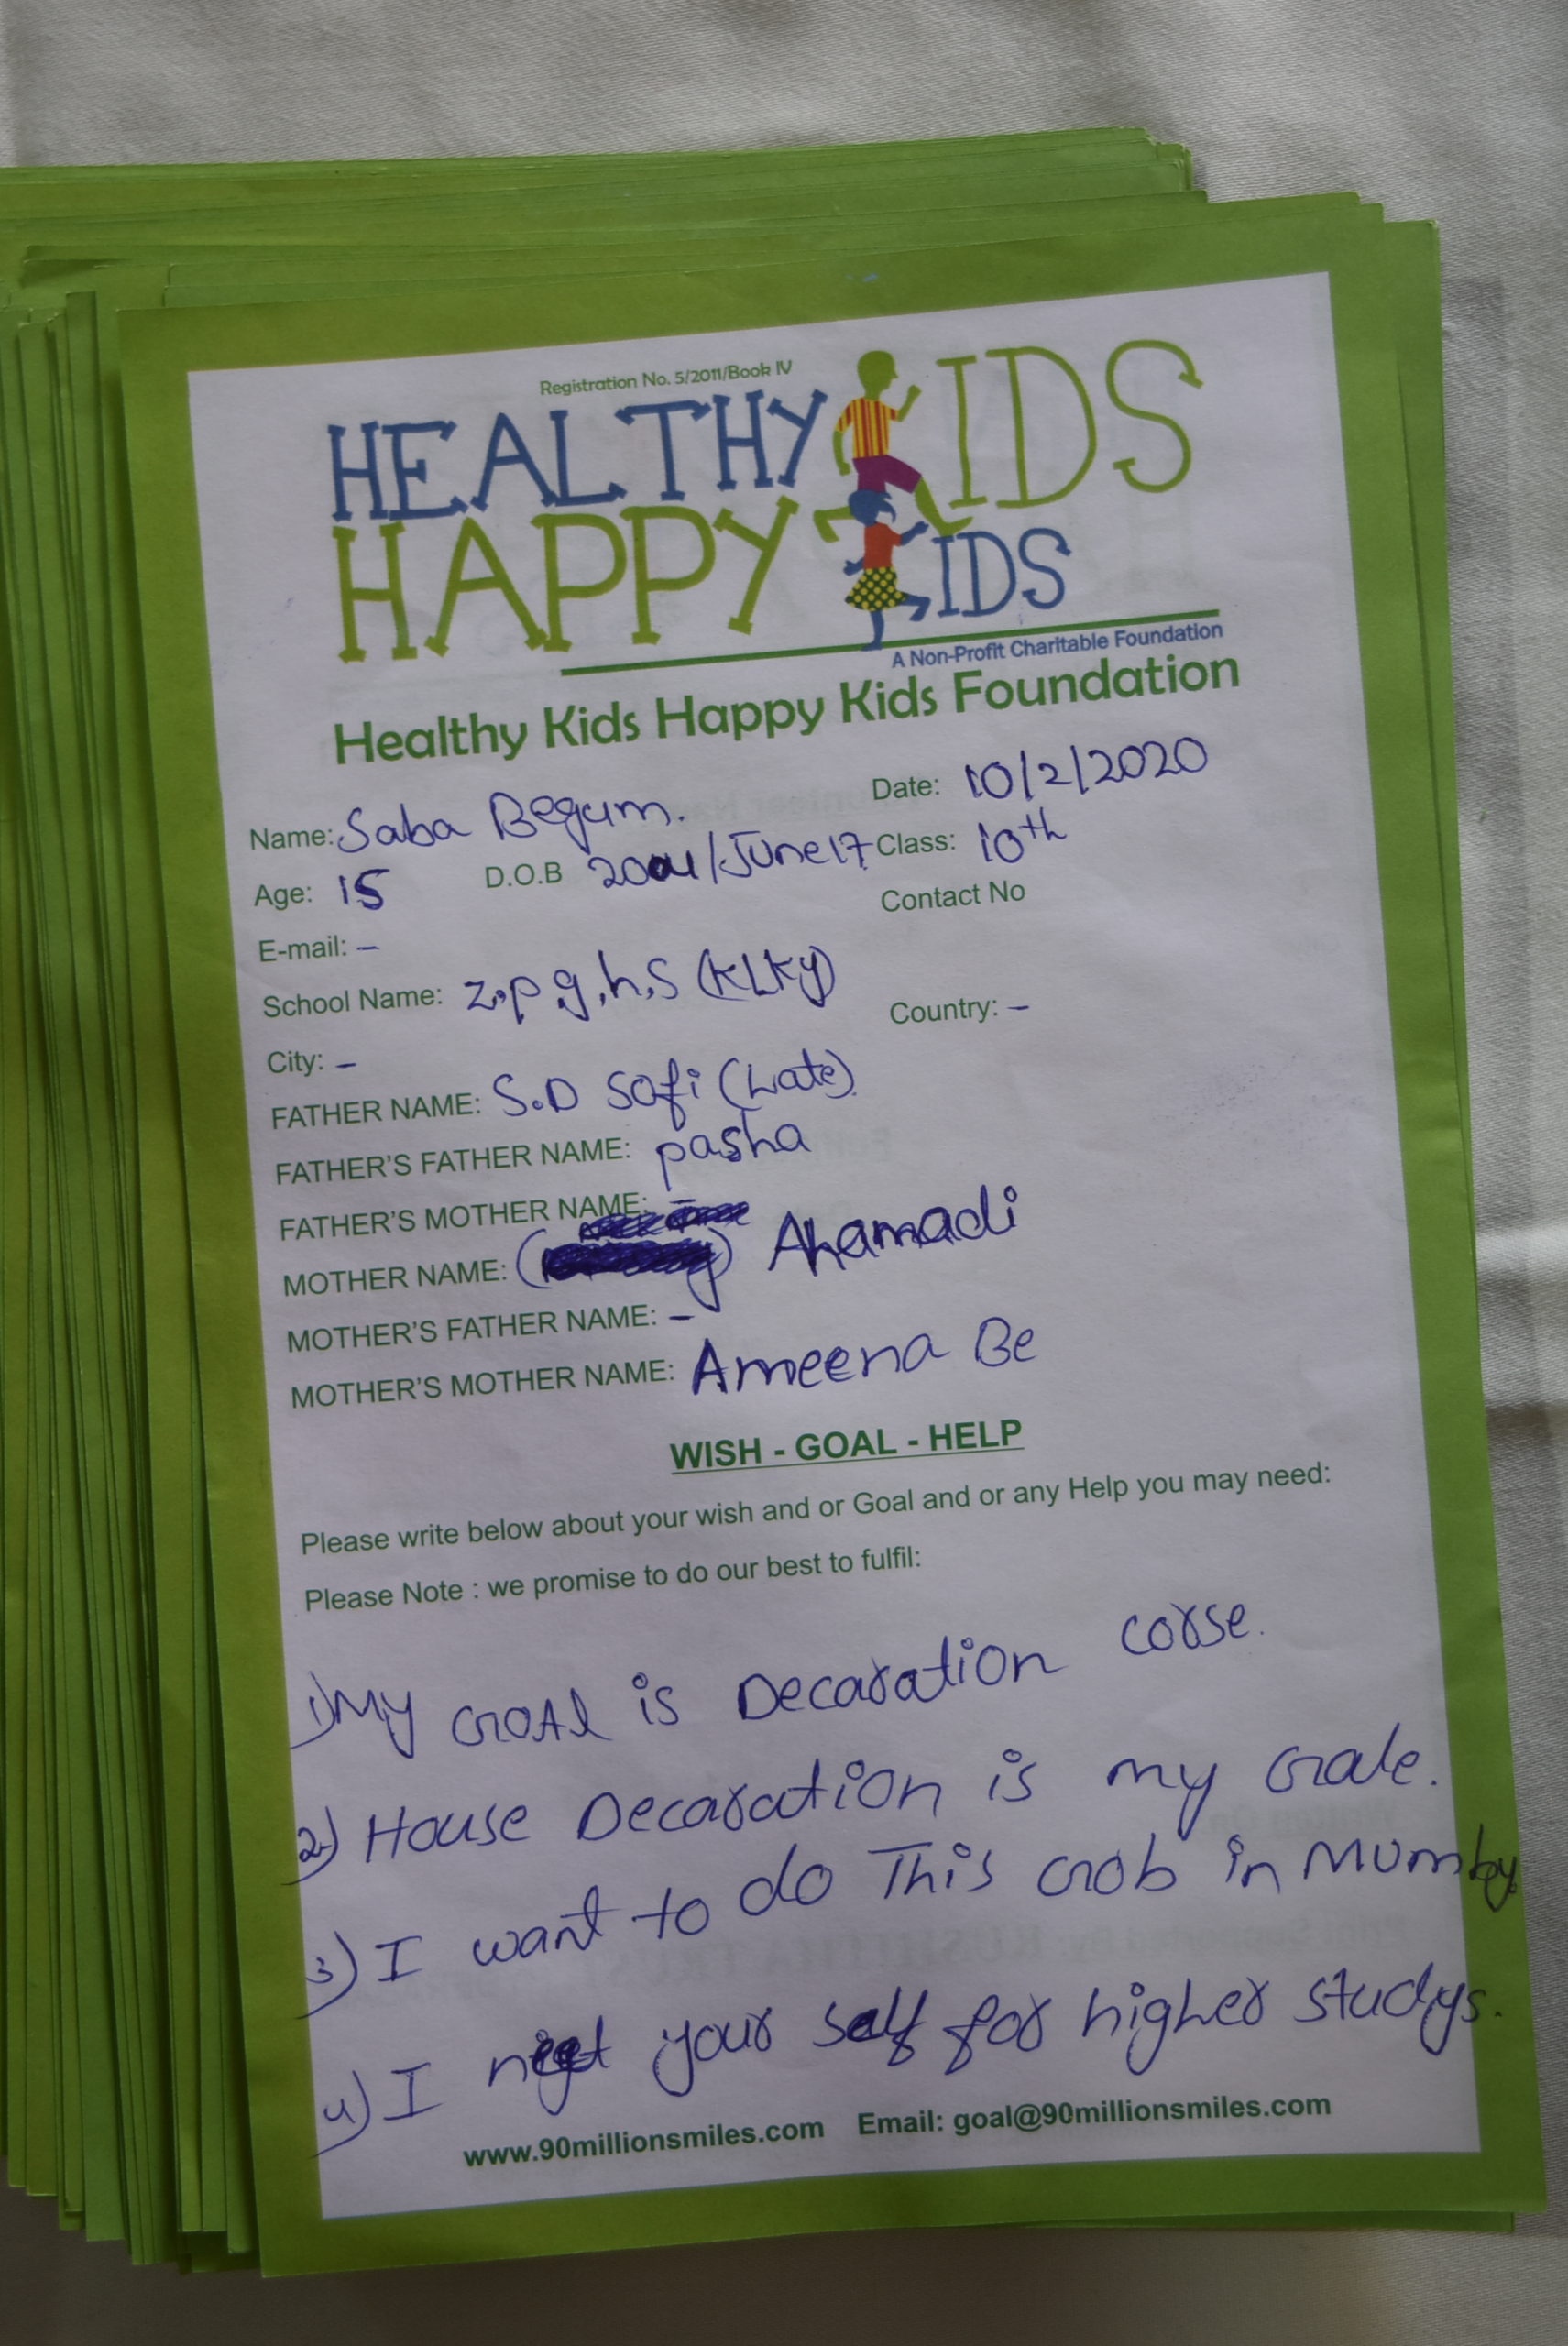 Registration No. 5/2011/Book IV
HEALTHY KIDS
HAPPY KIDS
A Non-Profit Charitable Foundation
Healthy Kids Happy Kids Foundation
Name: Saba Begum. Date: 10/2/2020
Age: 15 D.O.B /June 17 Class: 10th
E-mail: – Contact No
School Name: z.p.g.h.s (KLKy)
City: – Country: –
FATHER NAME: S.D Safi (Late)
FATHER'S FATHER NAME: pasha
FATHER'S MOTHER NAME:
MOTHER NAME: Ahamadi
MOTHER'S FATHER NAME: –
MOTHER'S MOTHER NAME: Ameena Be
WISH - GOAL - HELP
Please write below about your wish and or Goal and or any Help you may need:
Please Note : we promise to do our best to fulfil:
1) My GOAl is Decaration corse.
2) House Decaration is my Gale.
3) I want to do This Gob in Mumby.
4) I your self for higher studys.
www.90millionsmiles.com Email: goal@90millionsmiles.com